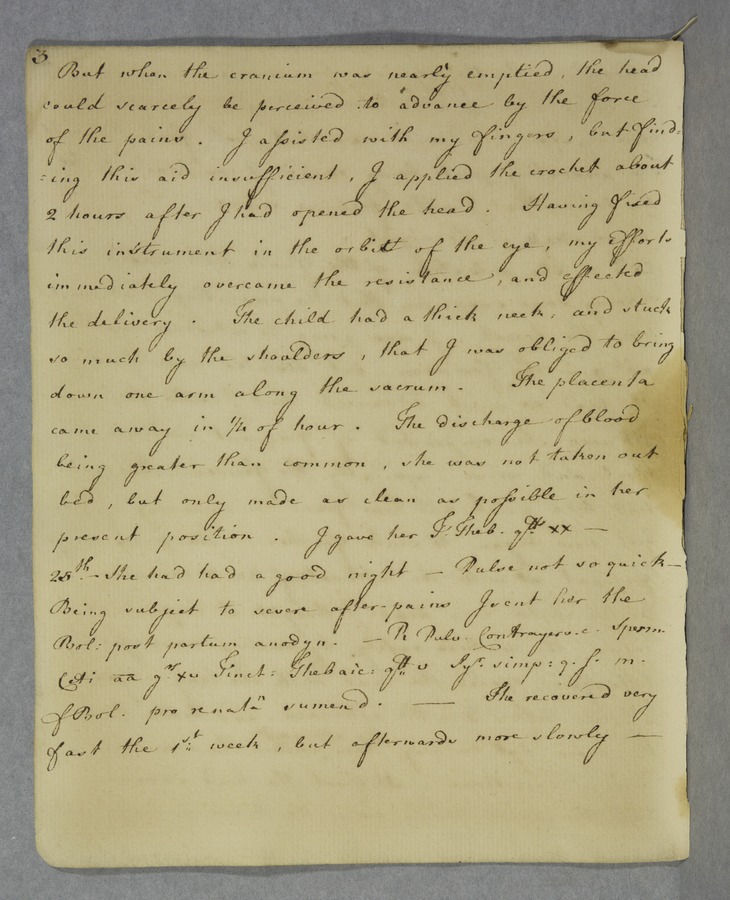 3
But when the cranium was nearly emptied, the head
could scarcely be perceived to advance by the force
of the pains. I assisted with my fingers, but find=
=ing this aid insufficient, I applied the crochet about
2 hours after I had opened the head. Having fixed
this instrument in the orbit of the eye, my efforts
immediately overcame the resistance, and effected
the delivery. The child had a thick neck, and stuck
so much by the shoulders, that I was obliged to bring
down one arm along the sacrum. The placenta
came away in of hour. The discharge of blood
being greater than common, she was not taken out
bed, but only made as clean as possible in her
present position. I gave her T. Theb. gtt xx —
25th. — She had had a good night — Pulse not so quick —
Being subject to severe after-pains I sent her the
Bol: post partum anodyn. — R Pulv. Contrayerv. c. Sperm.
Ceti aa gr. xv Tinct: Thebaic: gtt v Syr. simp: q. s. m.
f Bol. pro re natâ sumend. — She recovered very
fast the 1st week, but afterwards more slowly —